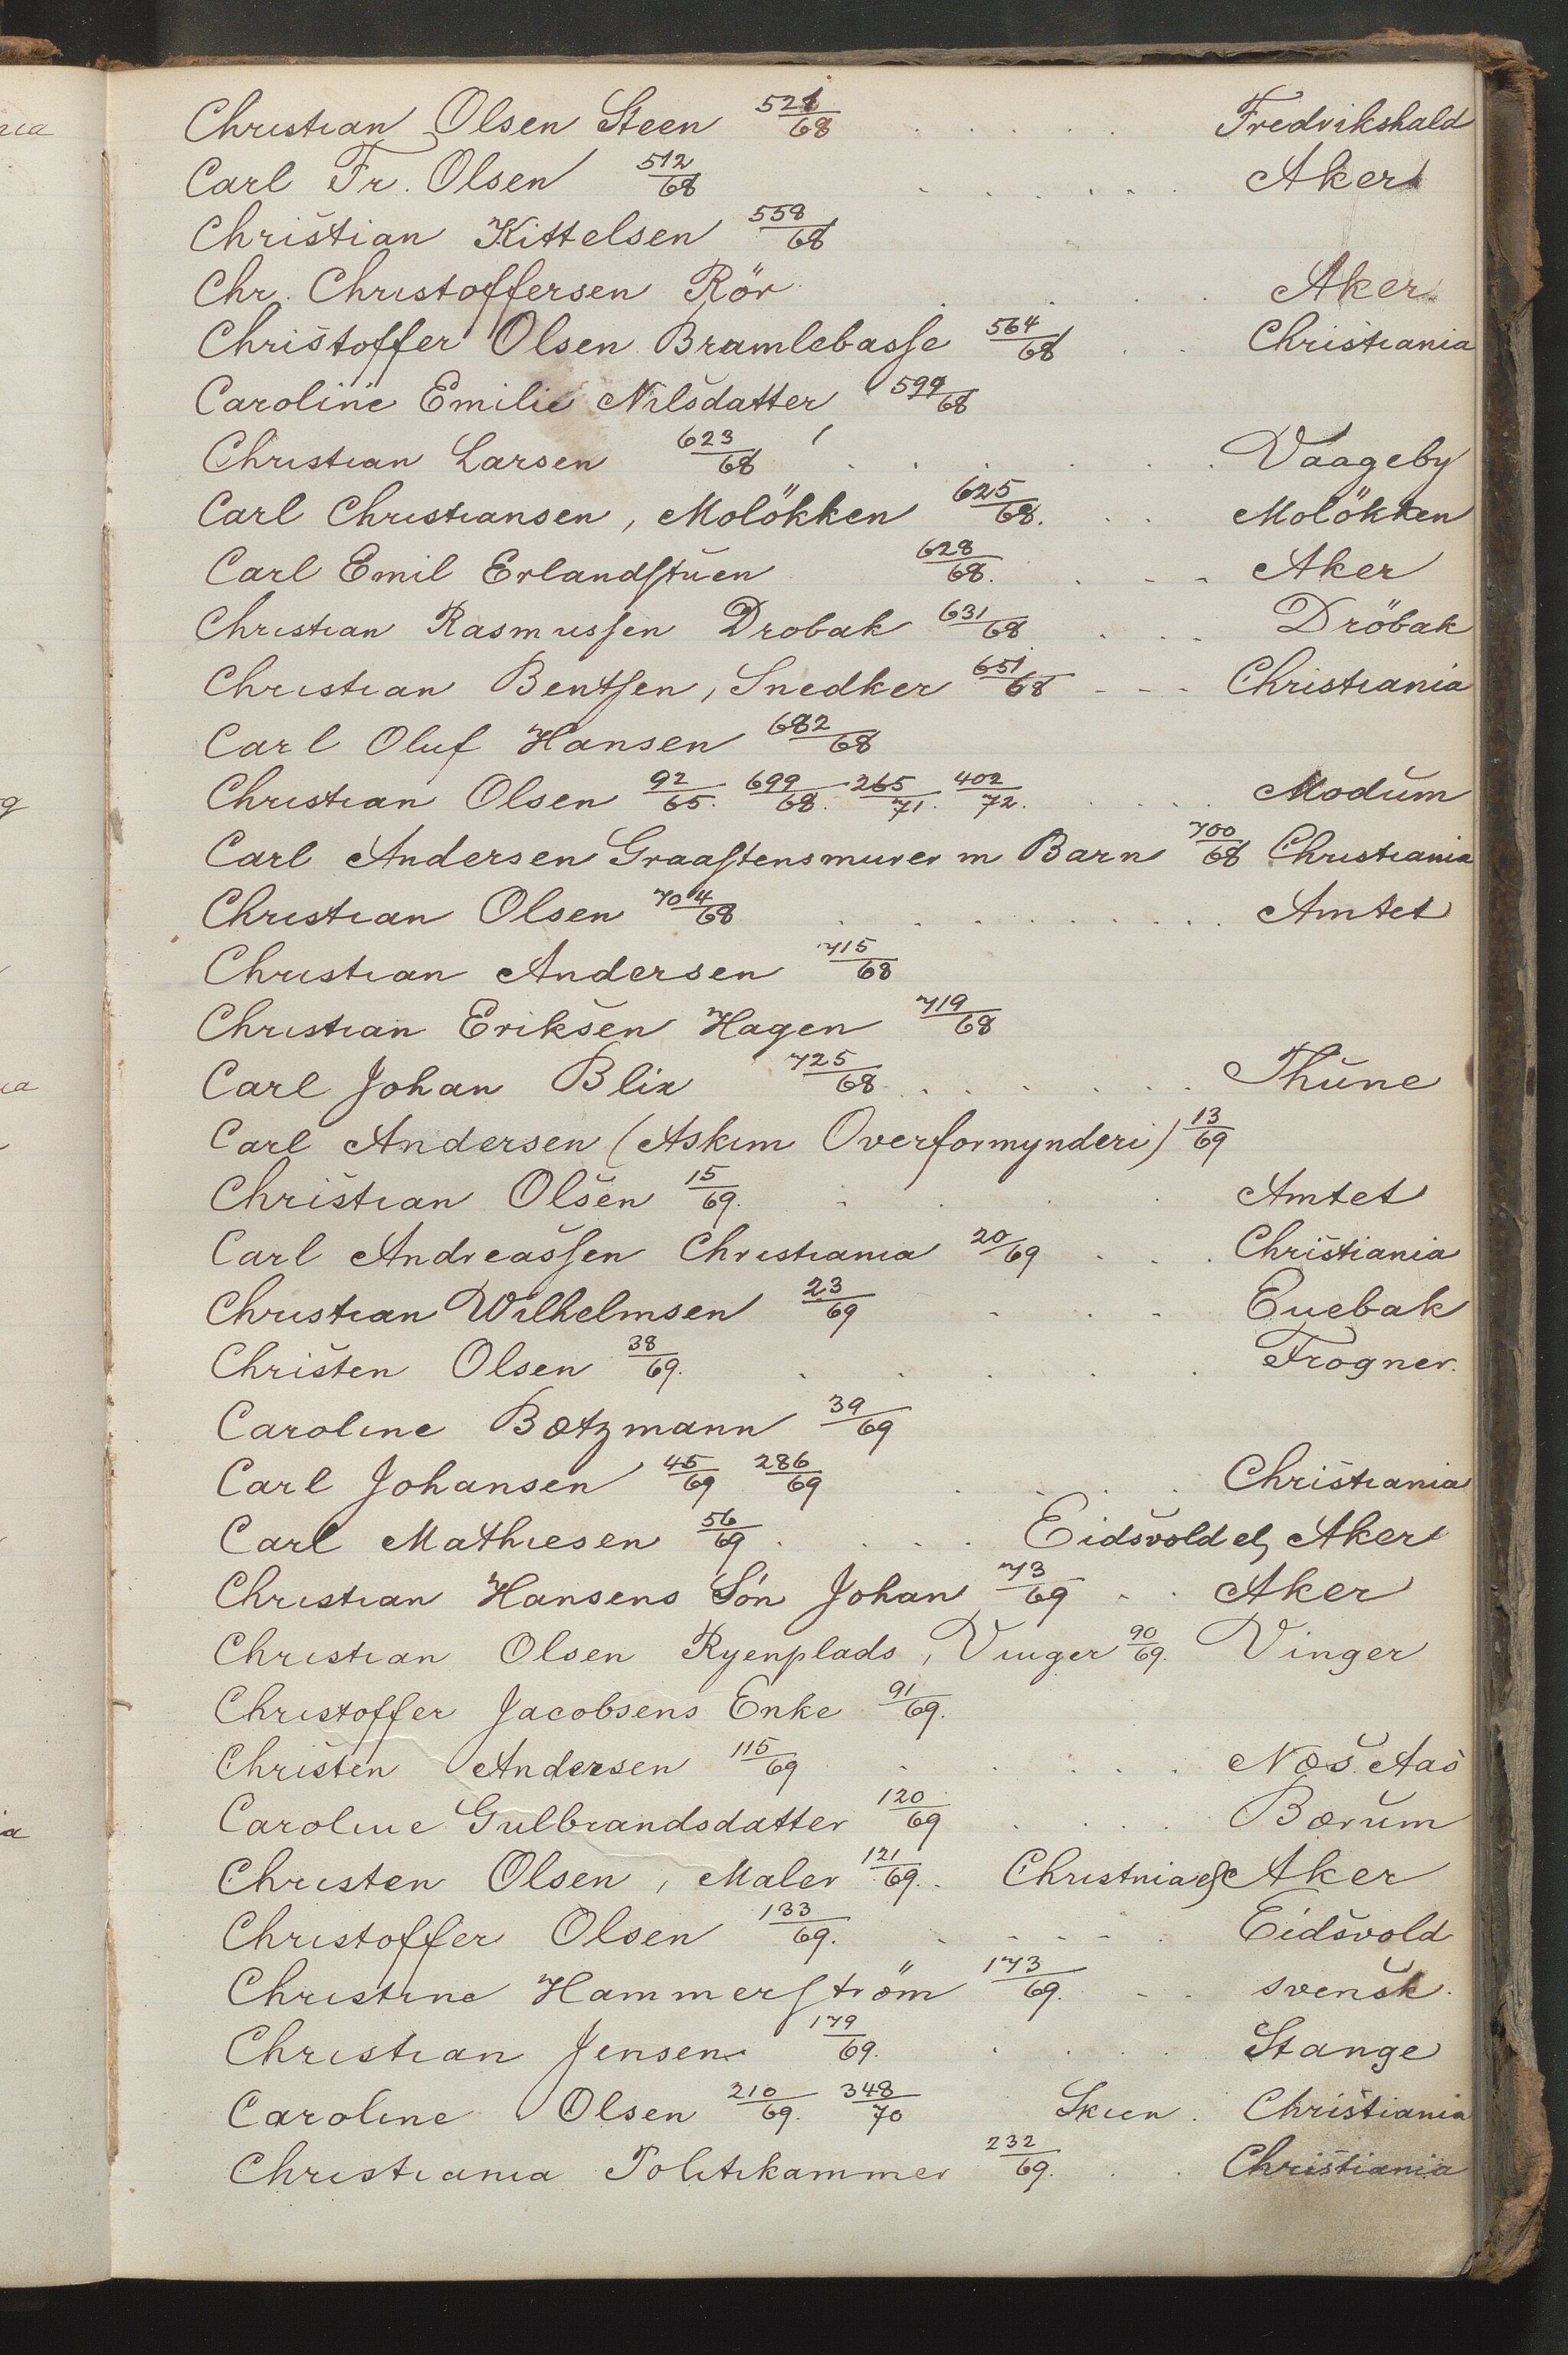 Christian Olsen Steen 521/68 . . . . . Fredrikshald
Carl Fr. Olsen 512/68 . . . . . Aker
Christian Kittelsen 558/68
Chr. Christoffersen Rör . . . Aker
Christoffer Olsen Bramlebasse 564/68 . . Christiania
Caroline Emilie Nilsdatter 599/68
Christian Larsen 623/68 . . . . . . Vaageby
Carl Christiansen, Molökken 625/68. . . Molökken
Carl Emil Erlandstuen 628/68. . - - Aker
Christian Rasmussen Drobak 631/68 . . . Dröbak
Christian Bentsen, Snedker 651/68 - - - Christiania
Carl Oluf Hansen 682/68
Christian Olsen 92/65. 699/68. 265/71. 402/72. . . . . Modum
Carl Andersen Graastensmurer m Barn 700/68 Christiania
Christian Olsen 704/68 . . . . . . . . Amtet
Christian Andersen 715/68
Christian Eriksen Hagen 719/68
Carl Johan Blix 725/68 . . . . . . Thune
Carl Andersen (Askim Overformynderi) 13/69
Christian Olsen 15/69. . . . . Amtet
Carl Andreassen Christiania 20/69 . . . Christiania
Christian Wilhelmsen 23/69 . . . Enebak
Christen Olsen 38/69. . . . . . Frogner.
Caroline Bætzmann 39/69
Carl Johansen 45/69 286/69 . . . . Christiania
Carl Mathiesen 56/69 . . . . Eidsvold el, Aker
Christian Hansens Sön Johan 73/69 - . Aker
Christian Olsen Ryenplads, Vinger 90/69. Vinger
Christoffer Jacobsens Enke 91/69.
Christen Andersen 115/69 . . . . . Næs. Aas
Caroline Gulbrandsdatter 120/69 . . . . Bærum
Christen Olsen, Maler 121/69. . Christnia Aker
Christoffer Olsen 133/69. . - - - . Eidsvold
Christine Hammerström 173/69. - . svensk.
Christian Jensen 179/69. . . . . Stange
Caroline Olsen 210/69. 348/70 Skien. Christiania
Christiania Politikammer 232/69. . . Christiania